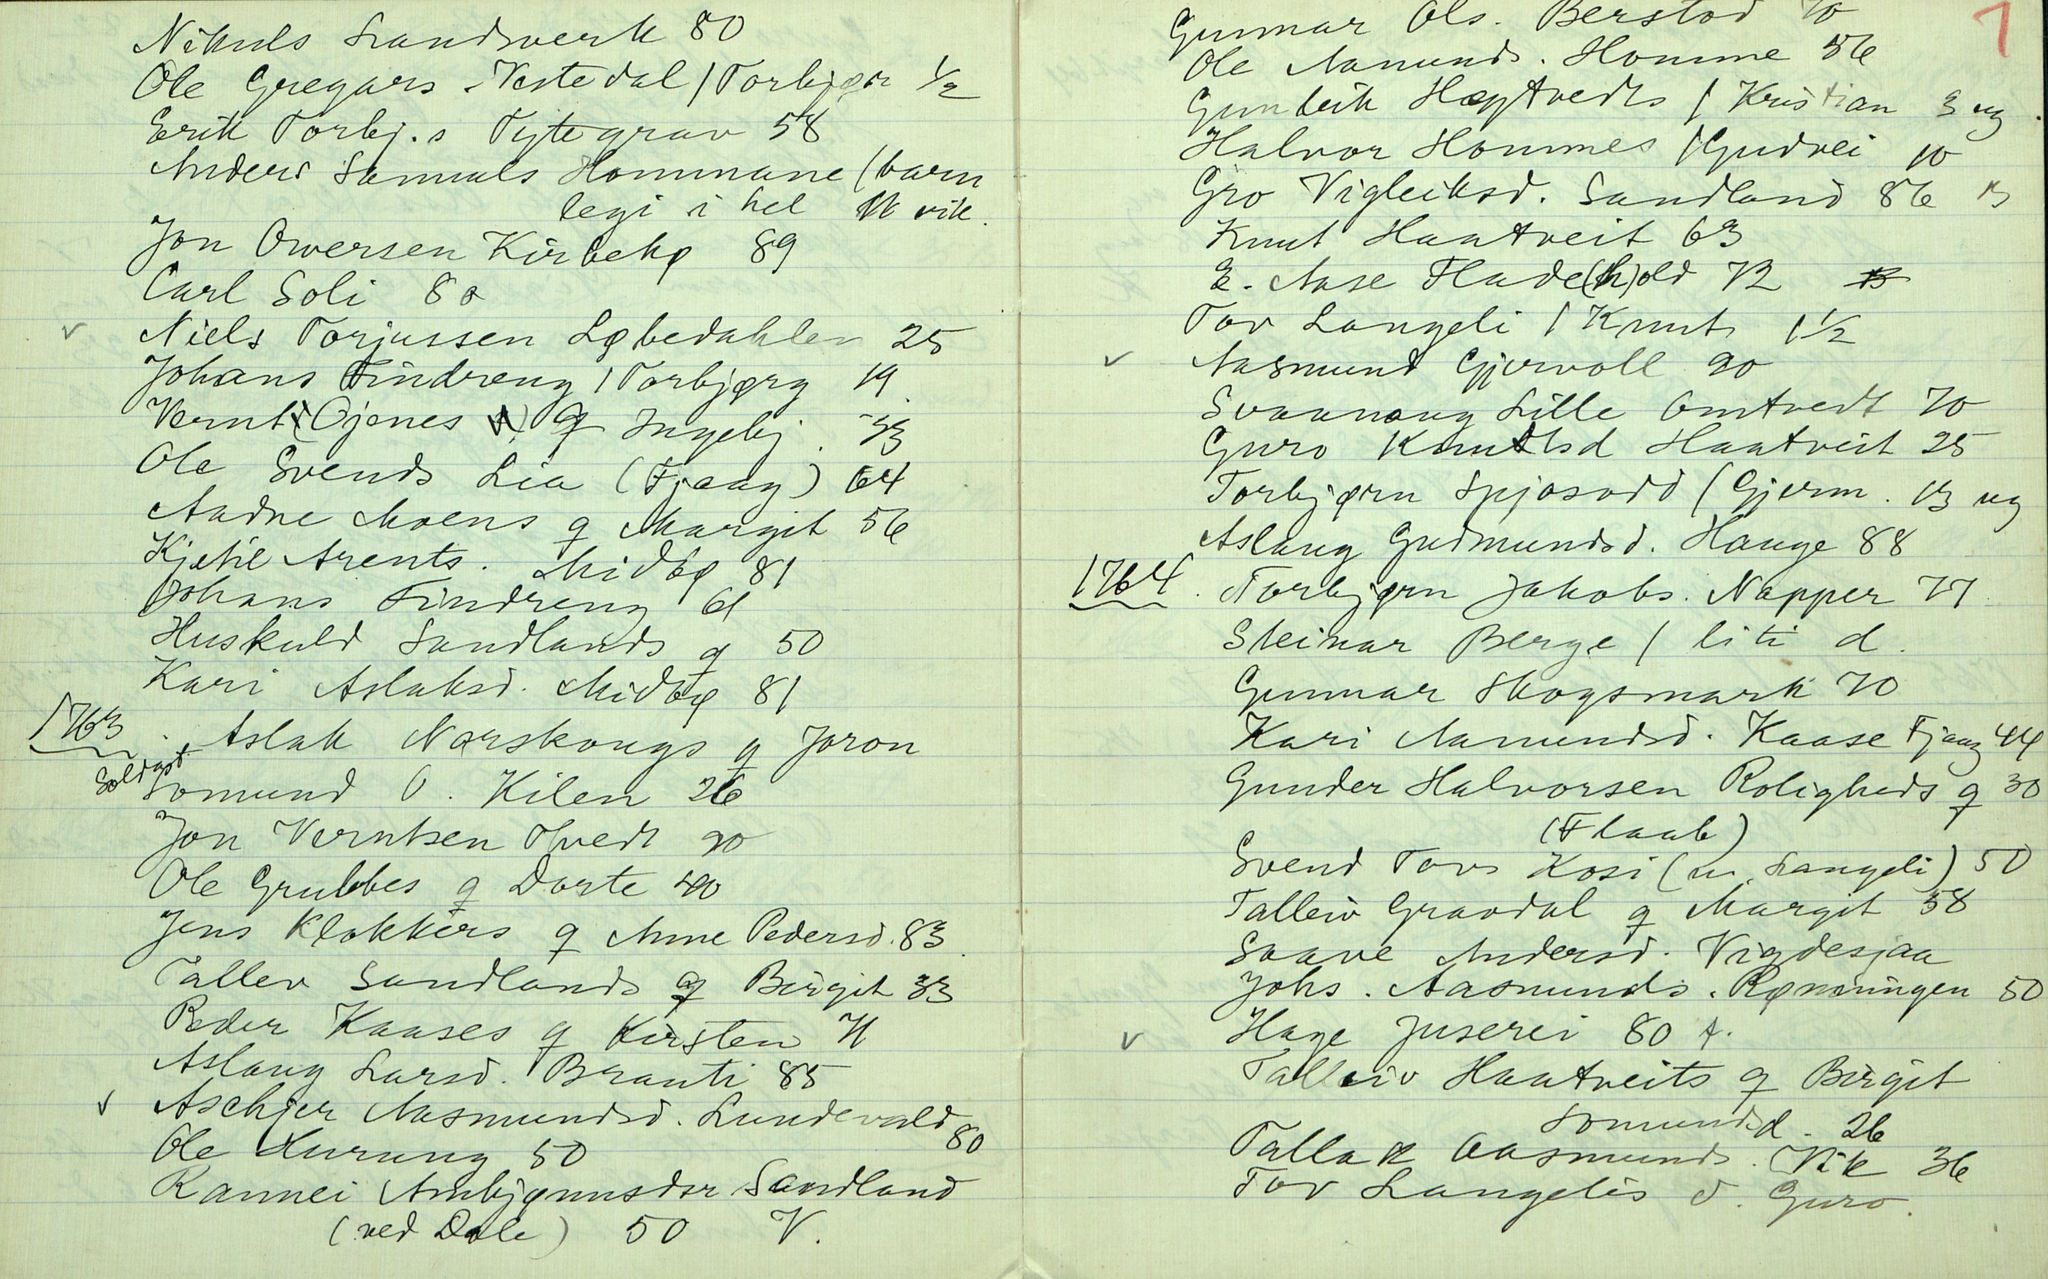 Nikuls Landsverk 80
Ole Gregars. Vestedal / Torbjør 1/2
Erik Torbj.s Tytegrav 58
Anders Samuels Hommane (barn
legi i hel 11 vik.
Jon Owersen Kirbekø 89
Carl Soli 80
v Niels Torjussen Løbedahlen 25
Johans Tindreng / Torbjørg 19
Vernt (Ojenes q Ingebj. 53
Ole Svends Lia (Fjaag) 64
Aadne Moens q Margit 56
Kjetil Arents. Midbø 81
Johans Tindreng 61
Huskuld Sandlands q 50
Kari Aslaksd. Midbø 81
1763. Aslak Norskougs q Joron
Soldat Somund O. Kilen 26
Jon Verntsen Tvedt 20
Ole Grubbes q Dorte 40
Jens Klokkers q Anne Pedersd. 83
Tallev Sandlands q Birgit 33
Peder Kaases q Kirsten 71
Aslaug Larsd. Brauti 85
v Aschjer Aasmundsd. Lundevald 80
Ole Aurung 50
Rannei Ambjønnsdtr Sandland
(ved Dale) 50 V.
7
Gunnar Ols. Berstod 70
Ole Aamunds. Homme 56
Gunleik Hægtvedts / Kristian 3 ug
Halvor Hommes / Gudvei 10
Gro Vigleiksd. Sandland 86
Knut Haatveit 63
E. Aase Flade(h)old 72
Tov Langeli / Knut 1 1/2
v Aasmund Gjervoll 20
Svaanaug Lille Omtvedt 70
Guro Knutsd Haatveit 25
Torbjørn Spjosodd / Gjerm. 13 ug
Aslaug Gudmundsd. Hauge 88
1764. Torbjørn Jakobs. Napper 77
Steinar Berge / liti d.
Gunnar Skogsmark 70
Kari Aamundsd. Kaase Fjaag 44
Gunder Halvorsen Roligheds q 30
(Flaab)
Svend Tovs Kosi (u. Langeli) 50
Talleiv Gravdal q Margit 58
Saave Andersd. Vigdesjaa
Johs. Aasmunds. Rønningen 50
v Hage Juserei 80 f.
Talleiv Haatveits q Birgit
Somundsd. 26
Tallak Aasmunds. Vik 36
Tov Langelis d. Guro.